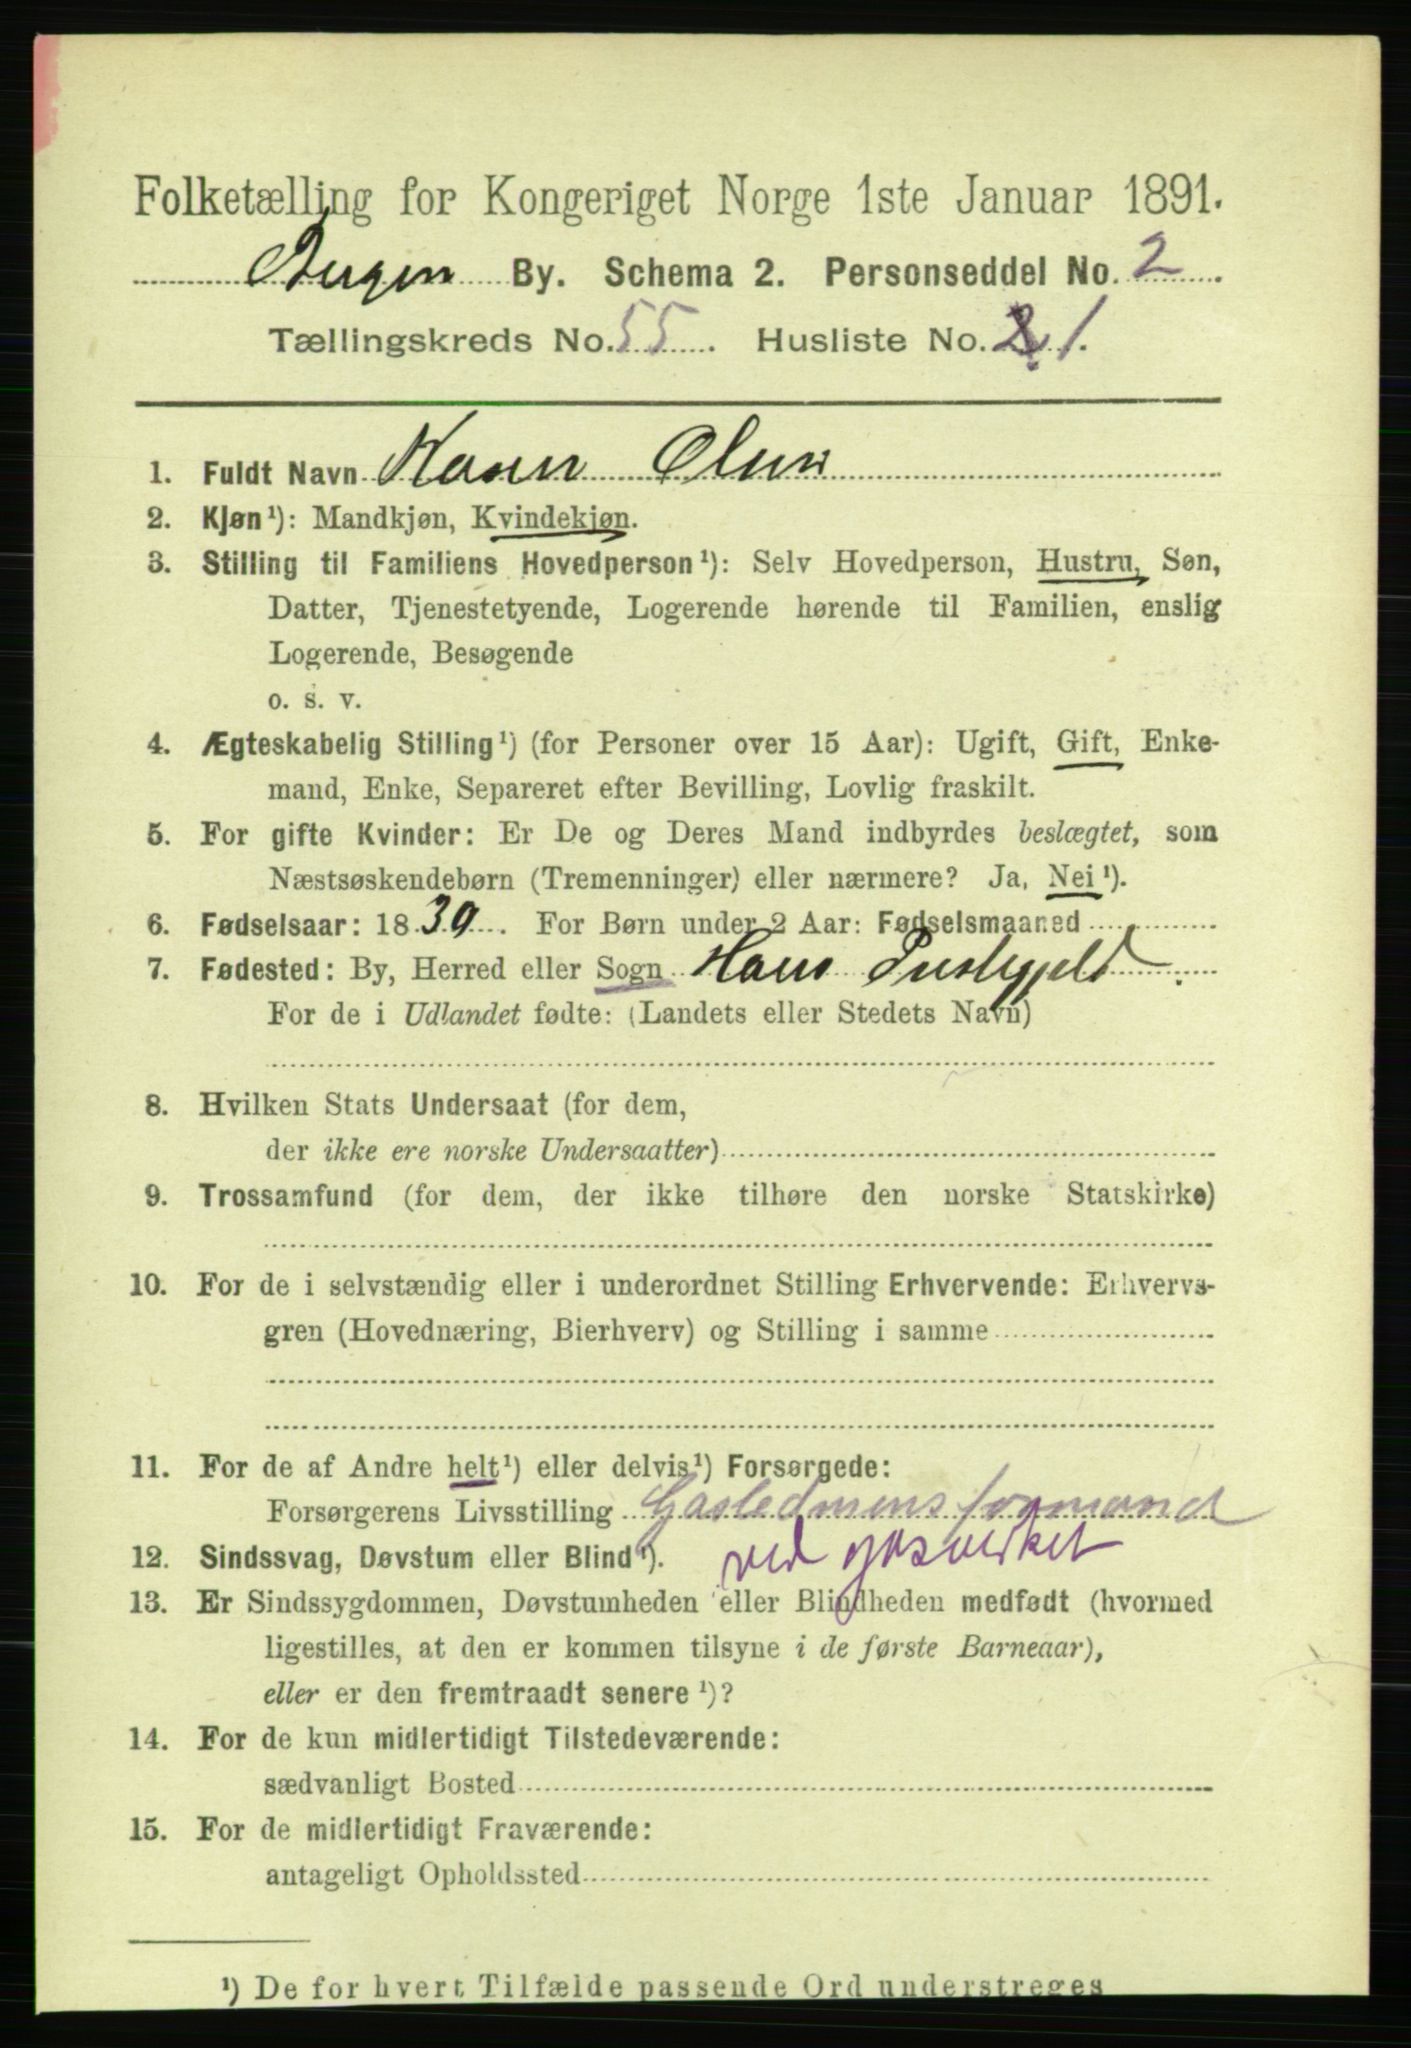 Folketælling for Kongeriget Norge 1ste Januar 1891.
Bergen By. Schema 2. Personseddel No. 2
Tællingskreds No. 55. Husliste No. 1.
1. Fuldt Navn Karen Olsen
2. Kjøn¹): Mandkjøn, Kvindekjøn.
3. Stilling til Familiens Hovedperson¹): Selv Hovedperson, Hustru, Søn,
Datter, Tjenestetyende, Logerende hørende til Familien, enslig
Logerende, Besøgende
o. s. v.
4. Ægteskabelig Stilling¹) (for Personer over 15 Aar): Ugift, Gift, Enke-
mand, Enke, Separeret efter Bevilling, Lovlig fraskilt.
5. For gifte Kvinder: Er De og Deres Mand indbyrdes beslægtet, som
Næstsøskendebørn (Tremenninger) eller nærmere? Ja, Nei¹).
6. Fødselsaar: 1839. For Børn under 2 Aar: Fødselsmaaned
7. Fødested: By, Herred eller Sogn Haus Prestegjeld.
For de i Udlandet fødte: (Landets eller Stedets Navn)
8. Hvilken Stats Undersaat (for dem,
der ikke ere norske Undersaatter)
9. Trossamfund (for dem, der ikke tilhøre den norske Statskirke)
10. For de i selvstændig eller i underordnet Stilling Erhvervende: Erhvervs-
gren (Hovednæring, Bierhverv) og Stilling i samme
11. For de af Andre helt¹) eller delvis¹) Forsørgede:
Forsørgerens Livsstilling Gasledniens formand
12. Sindssvag, Døvstum eller Blind¹). ved gasverket
13. Er Sindssygdommen, Døvstumheden eller Blindheden medfødt (hvormed
ligestilles, at den er kommen tilsyne i de første Barneaar),
eller er den fremtraadt senere¹)?
14. For de kun midlertidigt Tilstedeværende:
sædvanligt Bosted
15. For de midlertidigt Fraværende:
antageligt Opholdssted
¹) De for hvert Tilfælde passende Ord understreges